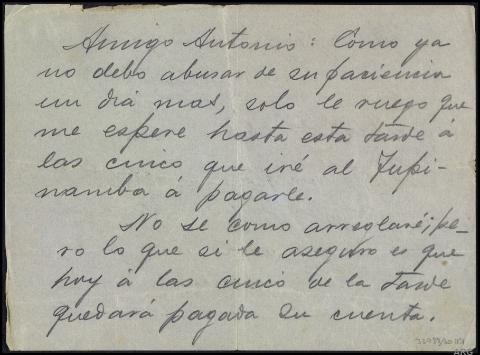 Amigo Antonio: Como ya
no debo abusar de su paciencia
un dia mas, solo le ruego que
me espere hasta esta tarde á
las cinco que iré al Tupi-
namba á pagarle.
No se como arreglaré; pe-
ro lo que si le aseguro es que
hoy á las cinco de la tarde
quedará pagada su cuenta.
ARG